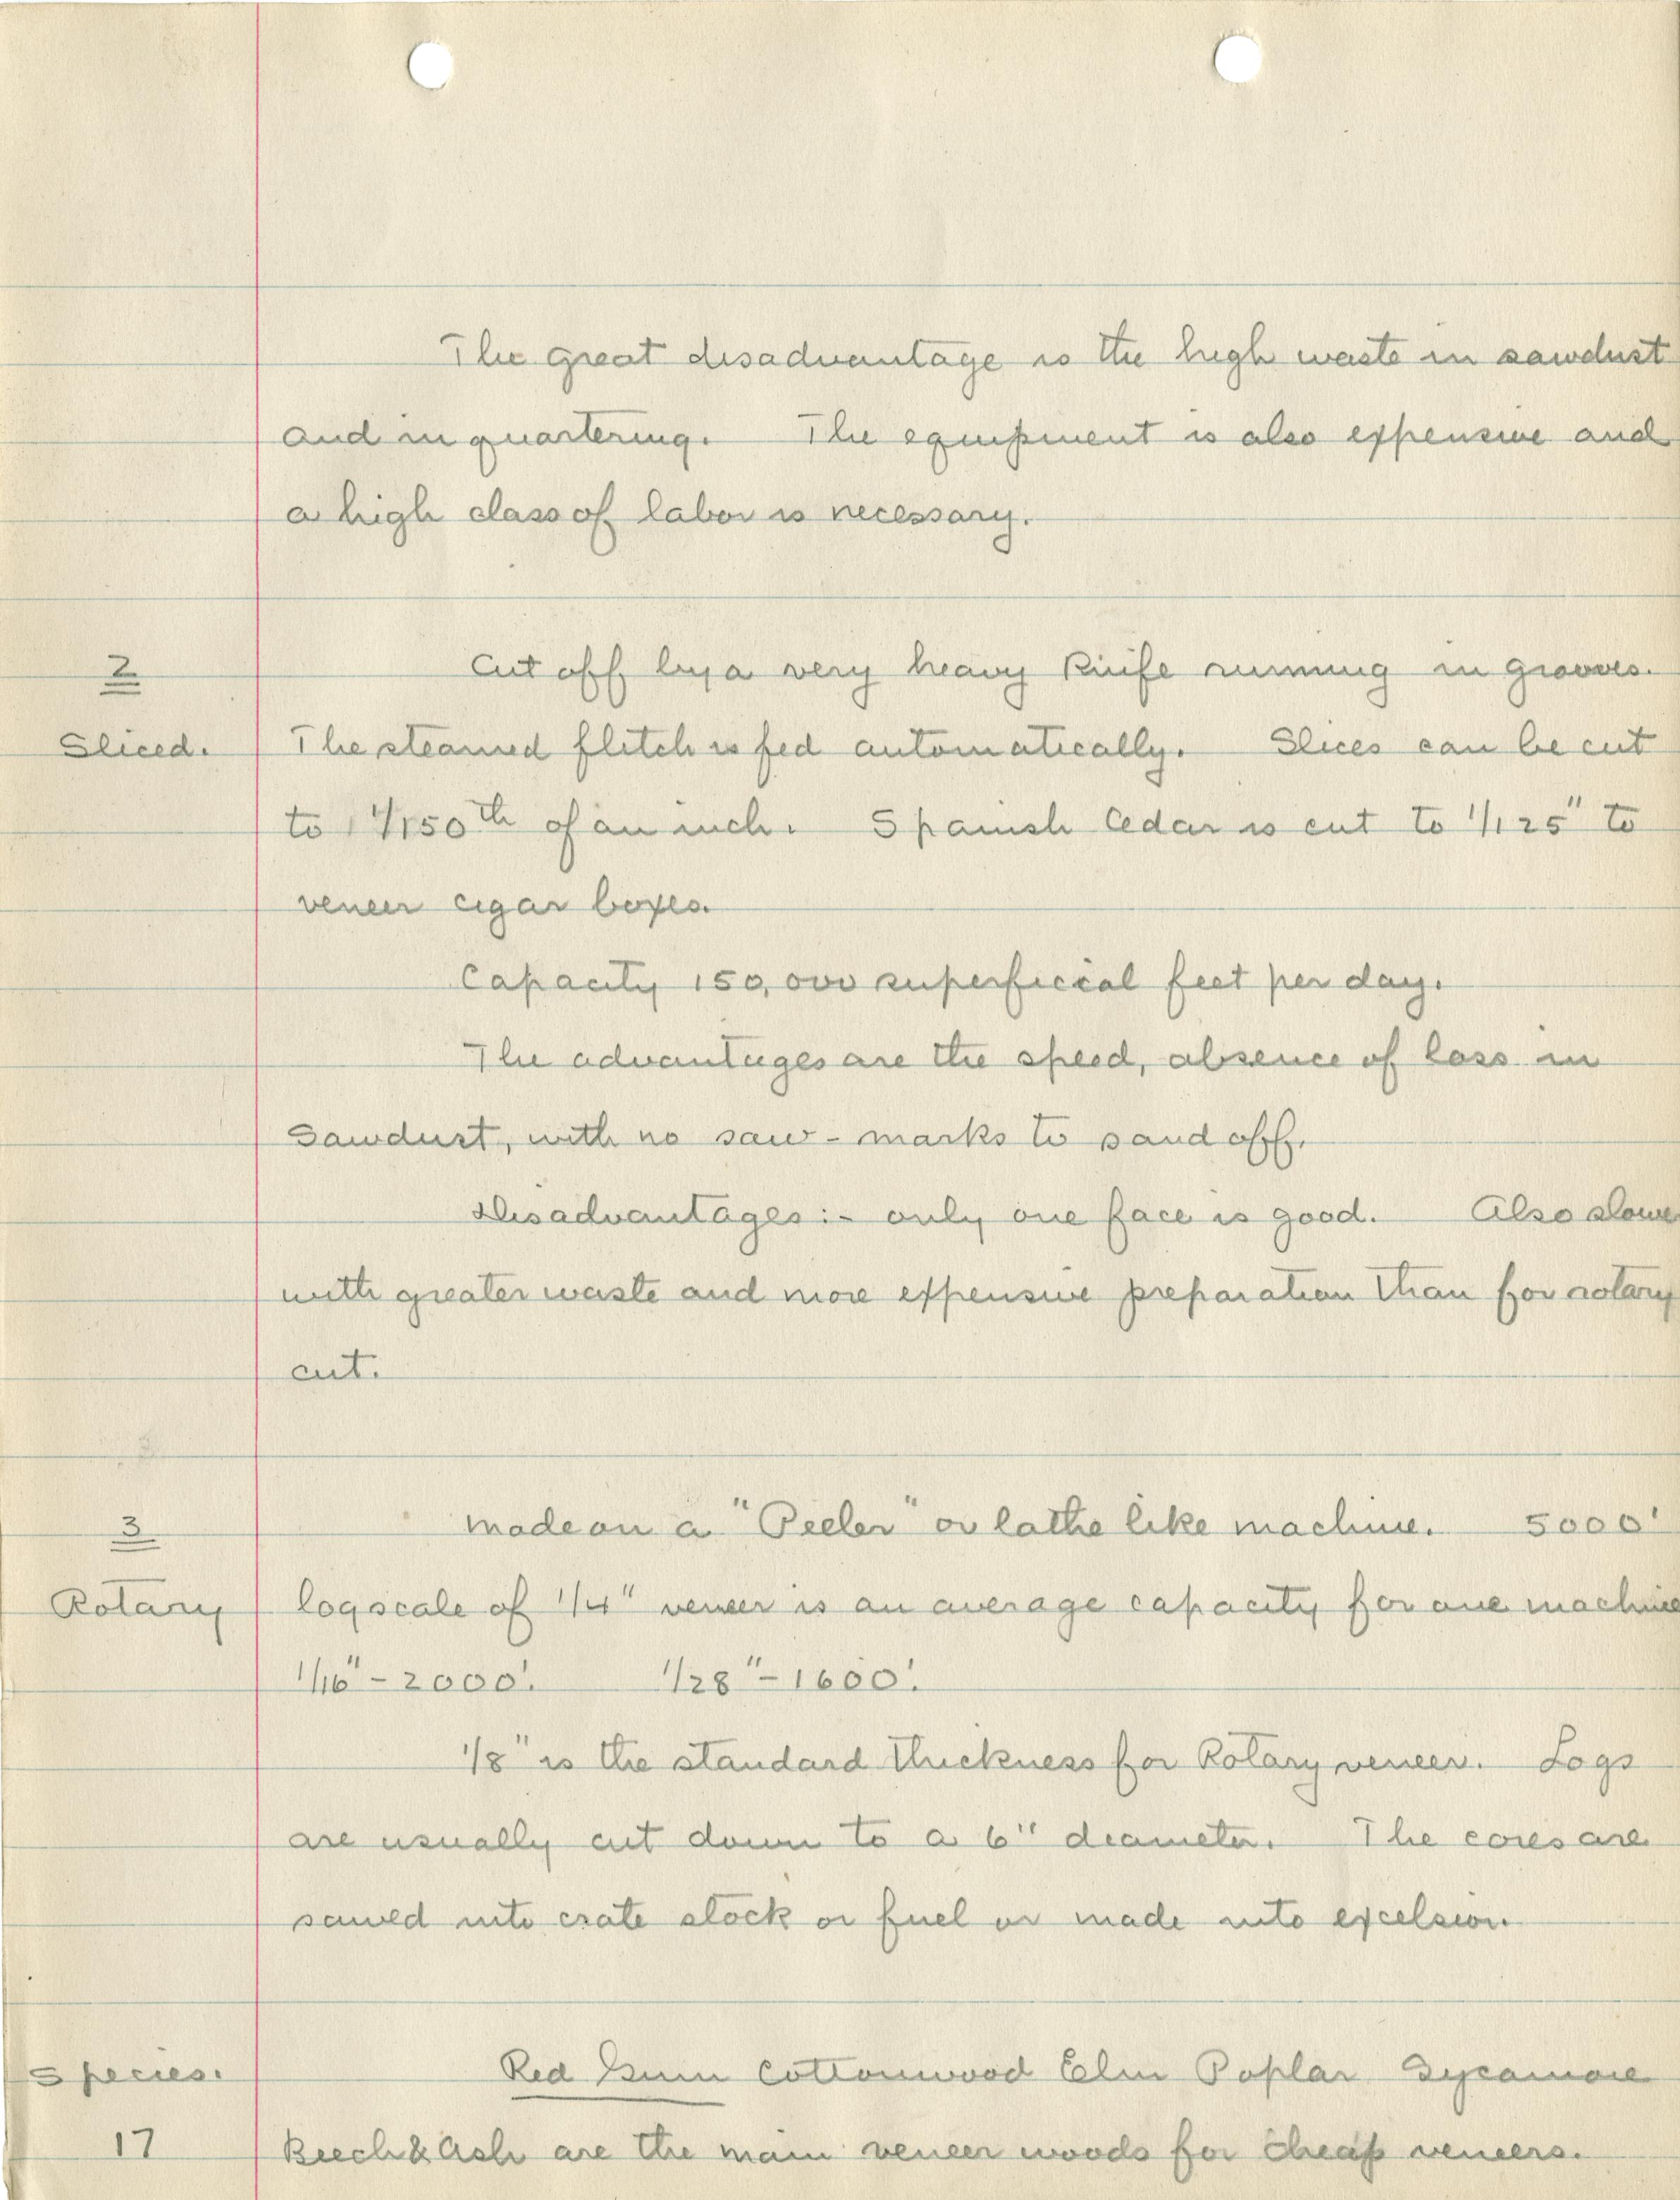 The great disadvantage is the high waste in sawdust
and in quartering. The equipment is also expensive and
a high class of labor is necessary.
2
Cut off by a very heavy Knife running in grooves.
Sliced. The steamed flitch is fed automatically. Slices can be cut
to 1/150th of an inch. Spanish Cedar is cut to 1/125" to
veneer cigar boxes.
Capacity 150,000 superficial feet per day.
The advantages are the speed, absence of loss in
sawdust, with no saw-marks to sand off.
Disadvantages:- only one face is good. Also slower
with greater waste and more expensive preparation than for rotary
cut.
3
Made on a "Peeler" or lathe like machine. 5000'
Rotary log scale of 1/4" veneer is an average capacity for one machine
1/16" - 2000'. 1/28" - 1600'.
1/8" is the standard thickness for Rotary veneer. Logs
are usually cut down to a 6" diameter. The cores are
sawed into crate stock or fuel or made into excelsior.
Species. Red Gum Cottonwood Elm Poplar Sycamore
17 Beech & Ash are the main veneer woods for cheap veneers.